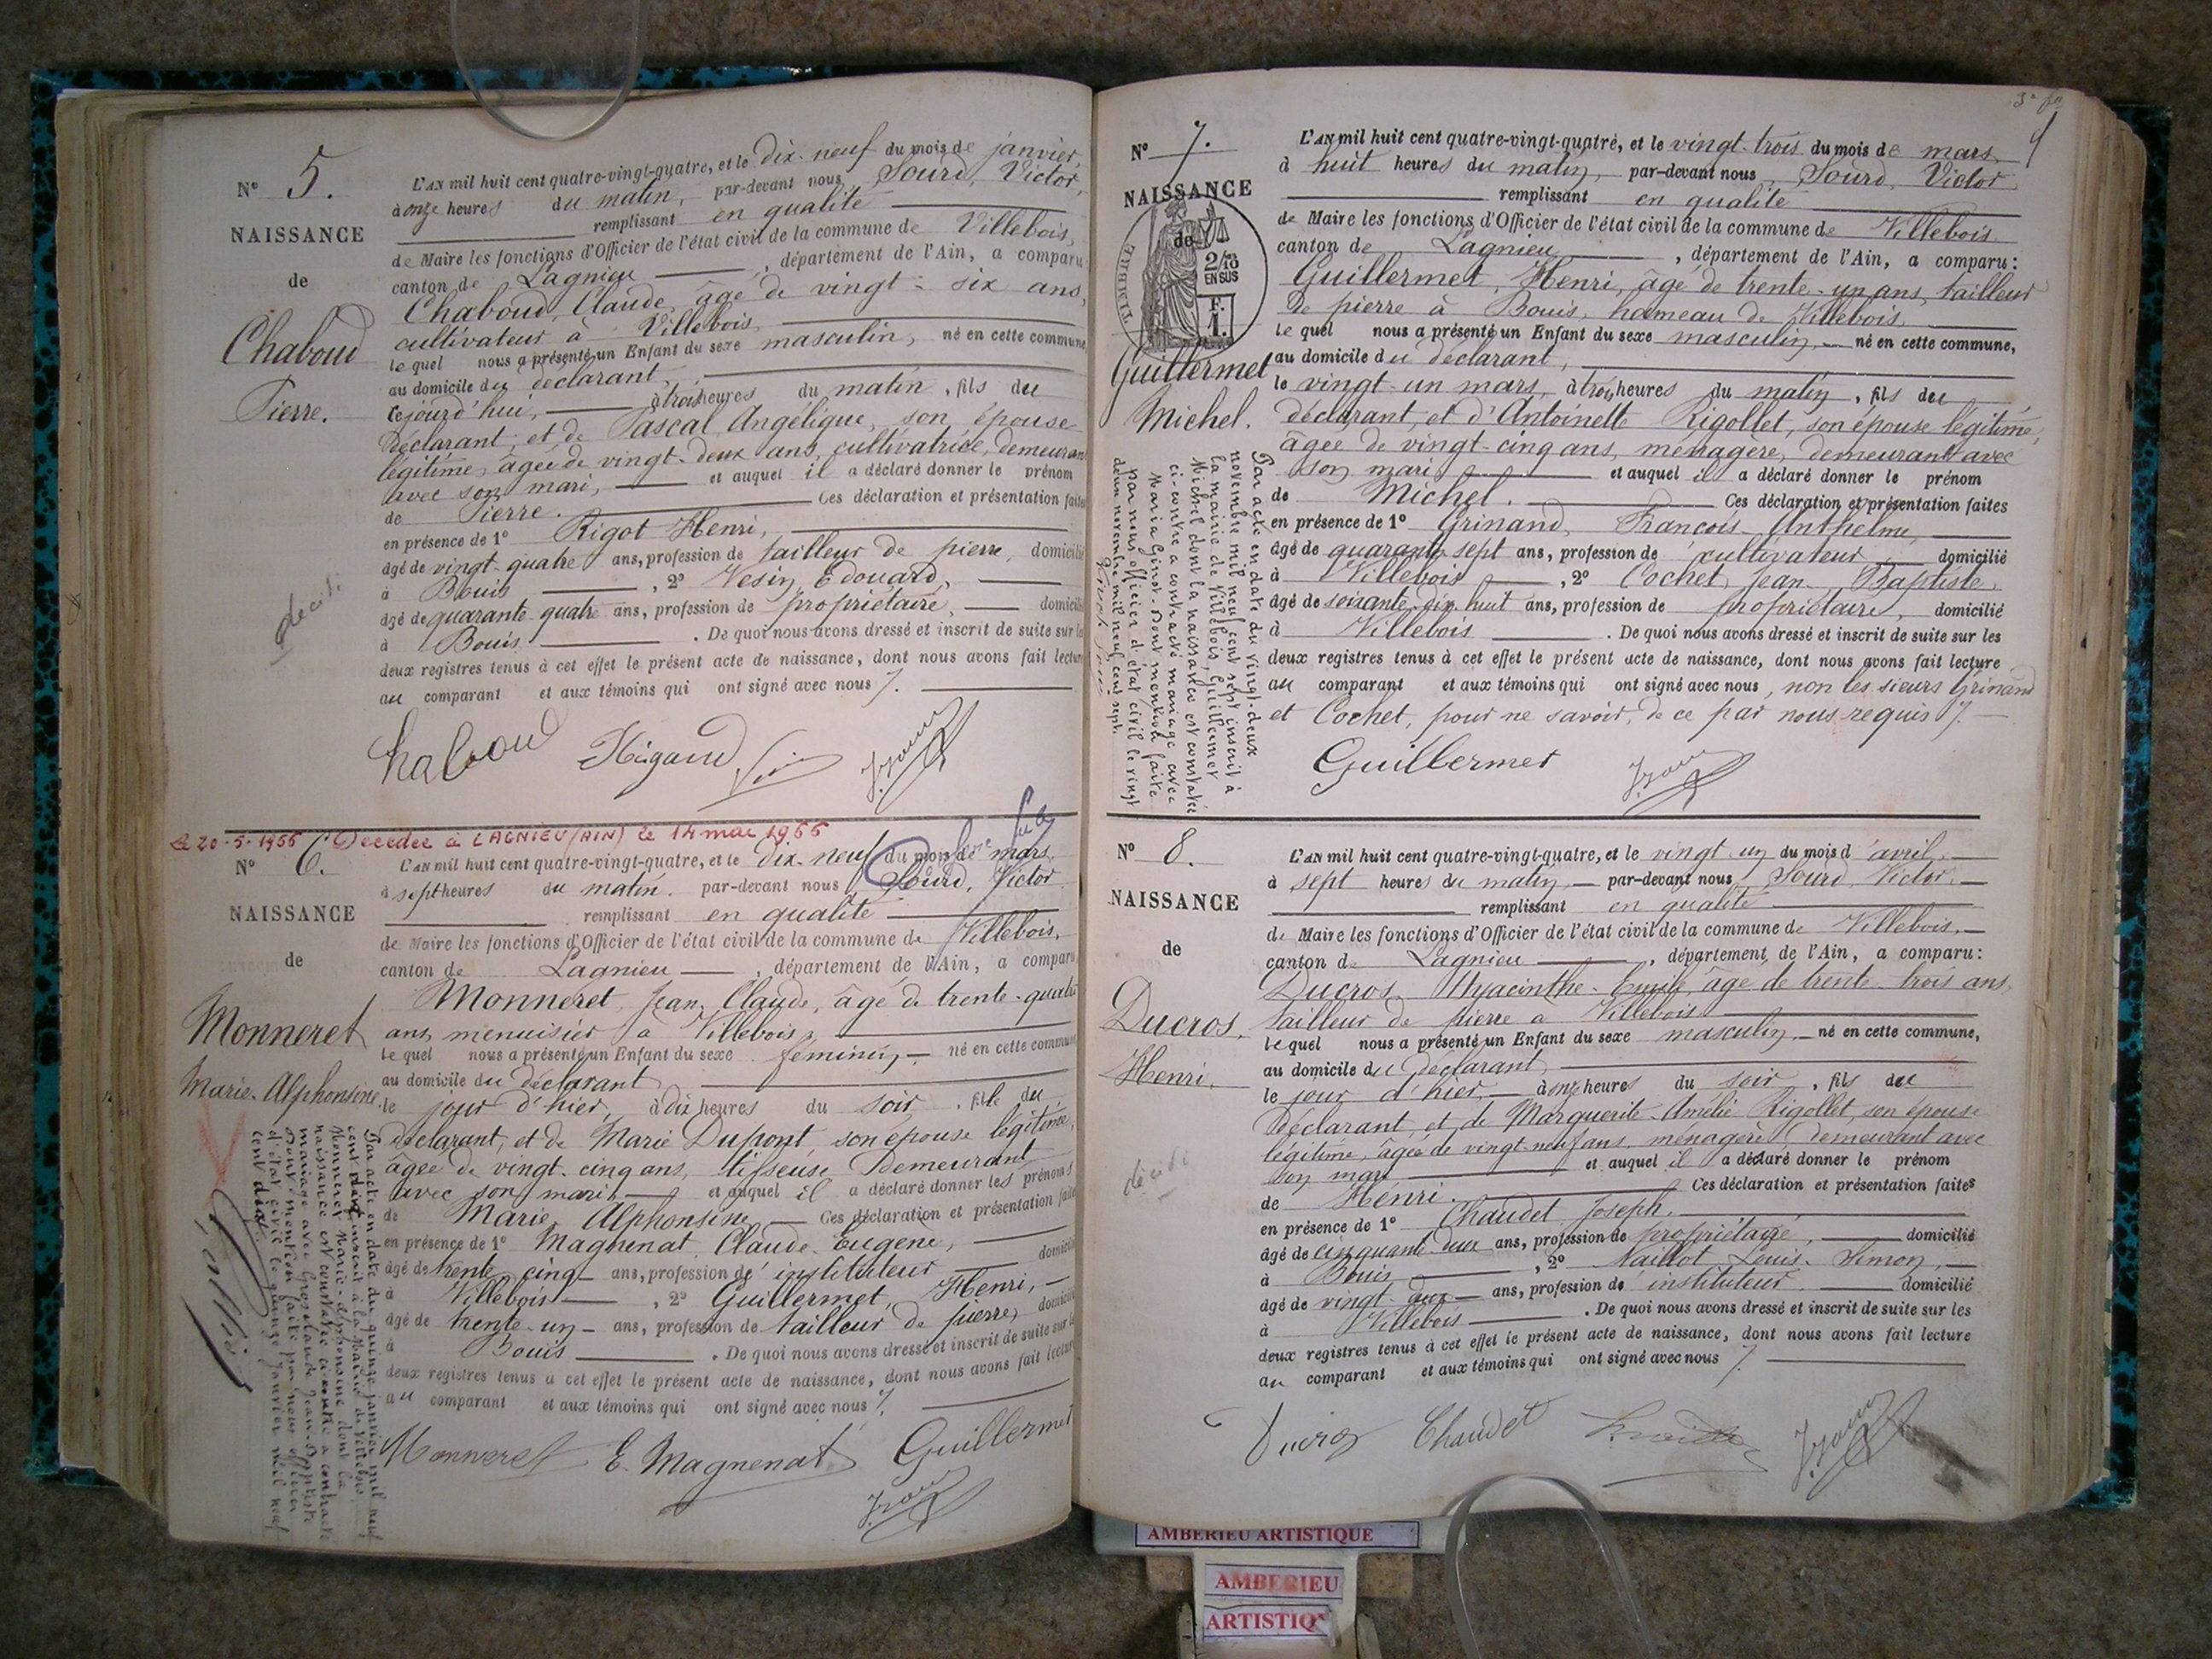 N° 5.
NAISSANCE
de
Chaboud
Pierre.
décédé
L'AN mil huit cent quatre-vingt-quatre, et le dix-neuf du mois de janvier,
à onze heures du matin, par-devant nous Sourd, Victor,
remplissant en qualité
de Maire les fonctions d'Officier de l'état civil de la commune de Villebois,
canton de Lagnieu, département de l'Ain, a comparu
Chaboud, Claude, âgé de vingt-six ans,
cultivateur à Villebois,
lequel nous a présenté un Enfant du sexe masculin, né en cette commune
au domicile du déclarant,
cejourd'hui, à trois heures du matin, fils du
déclarant, et de Pascal Angélique, son épouse
légitime, âgée de vingt-deux ans, cultivatrice, demeurant
avec son mari, et auquel il a déclaré donner le prénom
de Pierre. Ces déclaration et présentation faites
en présence de 1° Rigot Henri,
âgé de vingt-quatre ans, profession de tailleur de pierre, domicilié
à Bouis, 2° Vesin, Edouard,
âgé de quarante-quatre ans, profession de propriétaire, domicilié
à Bouis. De quoi nous avons dressé et inscrit de suite sur les
deux registres tenus à cet effet le présent acte de naissance, dont nous avons fait lecture
au comparant et aux témoins qui ont signé avec nous.
Chaboud Rigaud
Le 20-5-1955 Décédée à LAGNIEU (AIN) le 14 mai 1955
N° 6.
NAISSANCE
de
Monneret
Marie-Alphonsine.
L'AN mil huit cent quatre-vingt-quatre, et le dix-neuf du mois de mars
à sept heures du matin. par-devant nous Sourd, Victor
remplissant en qualité
de Maire les fonctions d'Officier de l'état civil de la commune de Villebois,
canton de Lagnieu, département de l'Ain, a comparu
Monneret, Jean-Claude, âgé de trente-quatre
ans, menuisier à Villebois,
lequel nous a présenté un Enfant du sexe féminin, né en cette commune
au domicile du déclarant,
le jour d'hier, à dix heures du soir, fille du
déclarant, et de Marie Dupont, son épouse légitime,
âgée de vingt-cinq ans, tisseuse, demeurant
avec son mari, et auquel il a déclaré donner les prénoms
de Marie Alphonsine. Ces déclaration et présentation faites
en présence de 1° Magnenat, Claude-Eugène,
âgé de trente-cinq ans, profession d'instituteur domicilié
à Villebois, 2° Guillermet, Henri,
âgé de trente-un ans, profession de tailleur de pierre, domicilié
à Bouis. De quoi nous avons dressé et inscrit de suite sur les
deux registres tenus à cet effet le présent acte de naissance, dont nous avons fait lecture
au comparant et aux témoins qui ont signé avec nous.
Par acte en date du quinze janvier mil neuf
cent dix inscrit à la Mairie de Villebois,
Monneret Marie-Alphonsine dont la
naissance est constatée ci-contre a contracté
mariage avec Jean-Baptiste
dont mention faite par nous officier
d'état civil le quinze janvier mil neuf
cent dix.
Monneret E. Magnenat Guillermet
3e
N° 7.
NAISSANCE
de
TIMBRE
2/10
EN SUS
F.
1.
Guillermet
Michel.
L'AN mil huit cent quatre-vingt-quatre, et le vingt-trois du mois de mars
à huit heures du matin, par-devant nous, Sourd, Victor,
remplissant en qualité
de Maire les fonctions d'Officier de l'état civil de la commune de Villebois
canton de Lagnieu, département de l'Ain, a comparu:
Guillermet, Henri, âgé de trente-un ans, tailleur
de pierre à Bouis, hameau de Villebois,
lequel nous a présenté un Enfant du sexe masculin, né en cette commune,
au domicile du déclarant,
le vingt-un mars, à trois heures du matin, fils du
déclarant, et d'Antoinette Rigollet, son épouse légitime,
âgée de vingt-cinq ans, ménagère, demeurant avec
son mari et auquel il a déclaré donner le prénom
de Michel. Ces déclaration et présentation faites
en présence de 1° Grinand, François-Anthelme,
âgé de quarante-sept ans, profession de cultivateur domicilié
à Villebois, 2° Cochet, Jean-Baptiste,
âgé de soixante-dix-huit ans, profession de propriétaire, domicilié
à Villebois. De quoi nous avons dressé et inscrit de suite sur les
deux registres tenus à cet effet le présent acte de naissance, dont nous avons fait lecture
au comparant et aux témoins qui ont signé avec nous, non les sieurs Grinand
et Cochet, pour ne savoir, de ce par nous requis.
Par acte en date du vingt-deux
novembre mil neuf cent sept inscrit à
la mairie de Villebois, Guillermet
Michel dont la naissance est constatée
ci-contre a contracté mariage avec
Maria Ginot. Dont mention faite
par nous officier d'état civil le vingt
deux novembre mil neuf cent sept.
Guillermet
N° 8.
NAISSANCE
de
Ducros.
Henri.
décédé
L'AN mil huit cent quatre-vingt-quatre, et le vingt-un du mois d'avril,
à sept heures du matin, par-devant nous Sourd, Victor,
remplissant en qualité
de Maire les fonctions d'Officier de l'état civil de la commune de Villebois,
canton de Lagnieu, département de l'Ain, a comparu:
Ducros, Hyacinthe-Emile, âgé de trente-trois ans,
tailleur de pierre à Villebois
lequel nous a présenté un Enfant du sexe masculin, né en cette commune,
au domicile du déclarant,
le jour d'hier, à onze heures du soir, fils du
déclarant, et de Marguerite-Amélie Rigollet, son épouse
légitime, âgée de vingt-neuf ans, ménagère, demeurant avec
son mari et auquel il a déclaré donner le prénom
de Henri. Ces déclaration et présentation faites
en présence de 1° Chaudet Joseph,
âgé de cinquante-deux ans, profession de propriétaire, domicilié
à Bouis, 2° Naillot Louis-Simon,
âgé de vingt-deux ans, profession d'instituteur, domicilié
à Villebois. De quoi nous avons dressé et inscrit de suite sur les
deux registres tenus à cet effet le présent acte de naissance, dont nous avons fait lecture
au comparant et aux témoins qui ont signé avec nous.
Ducros Chaudet
AMBERIEU ARTISTIQUE
AMBERIEU
ARTISTIQ